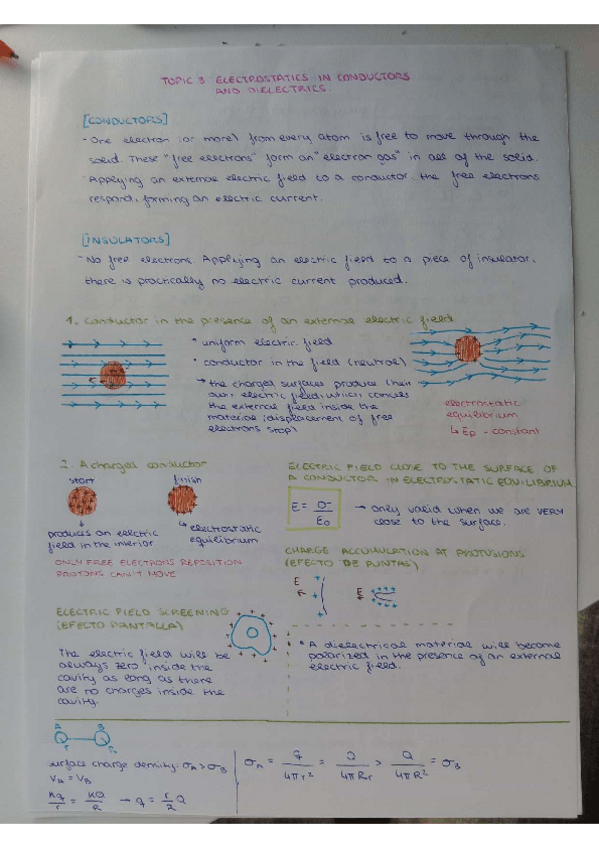 TOPIC 3 ELECTROSTATICS IN CONDUCTORS
AND DIELECTRICS.
[CONDUCTORS]
- One electron (or more) from every atom is free to move through the
solid. These "free electrons" form an "electron gas" in all of the solid.
- Applying an external electric field to a conductor, the free electrons
respond, forming an electric current.
[INSULATORS]
- No free electrons. Applying an electric field to a piece of insulator,
there is practically no electric current produced.
1. Conductor in the presence of an external electric field
* uniform electric field
* conductor in the field (neutral)
→ the charged surfaces produce their
own electric field, which cancels
the external field inside the
material (displacement of free
electrons stop)
electrostatic
equilibrium
↳ Ep - constant
2. A charged conductor
start
finish
produces an electric
field in the interior
↳ electrostatic
equilibrium
ONLY FREE ELECTRONS REPOSITION
PROTONS CAN'T MOVE
ELECTRIC FIELD CLOSE TO THE SURFACE OF
A CONDUCTOR IN ELECTROSTATIC EQUILIBRIUM
E = σ / ε0 → only valid when we are VERY
close to the surface.
CHARGE ACCUMULATION AT PROTUSIONS
(EFECTO DE PUNTAS)
E
E
ELECTRIC FIELD SCREENING
(EFECTO PANTALLA)
The electric field will be
always zero inside the
cavity as long as there
are no charges inside the
cavity.
* A dielectrical material will become
polarized in the presence of an external
electric field.
A B
r R
surface charge density: σA > σB
VA = VB
kq/r = kQ/R → q = r/R Q
σA = q/4πr² = Q/4πRr > Q/4πR² = σB